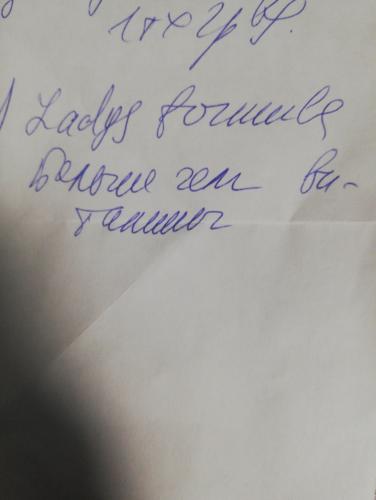 1т х 2 р
Ladys formula
Больше чем ви-
тамины